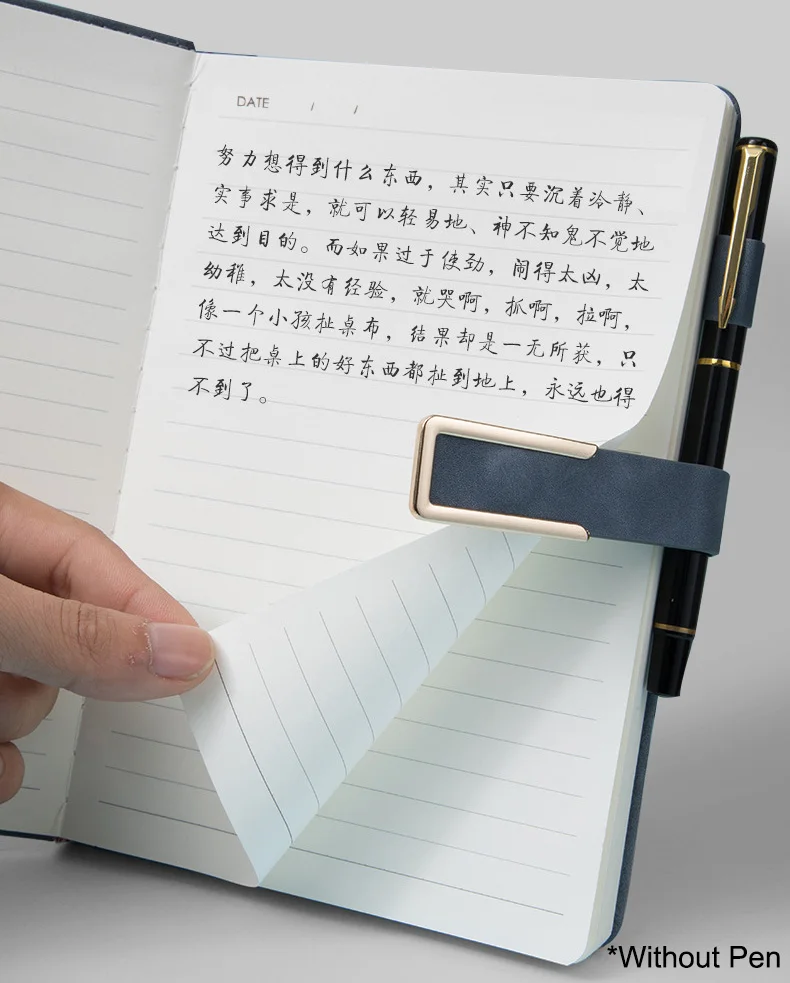 DATE / /
努力想得到什么东西，其实只要沉着冷静、
实事求是，就可以轻易地、神不知鬼不觉地
达到目的。而如果过于使劲，闹得太凶，太
幼稚，太没有经验，就哭啊，抓啊，拉啊，
像一个小孩扯桌布，结果却是一无所获，只
不过把桌上的好东西都扯到地上，永远也得
不到了。
*Without Pen